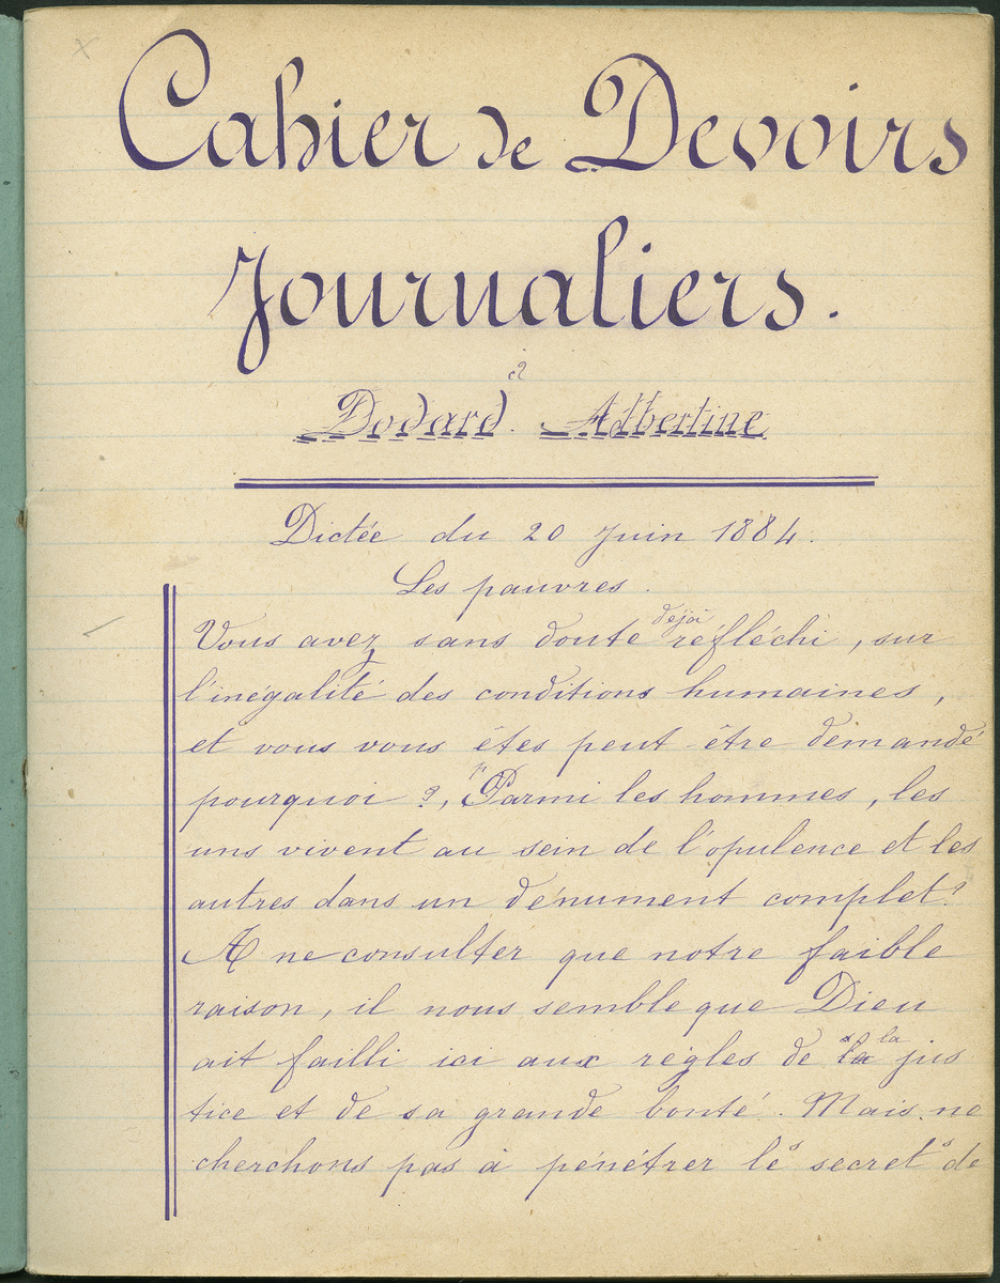 Cahier de Devoirs
Journaliers.
Dodard. Albertine
Dictée du 20 Juin 1884.
Les pauvres.
déjà
Vous avez sans doute réfléchi, sur
l'inégalité des conditions humaines,
et vous vous êtes peut-être demandé
pourquoi ?, Parmi les hommes, les
uns vivent au sein de l'opulence et les
autres dans un dénument complet?
A ne consulter que notre faible
raison, il nous semble que Dieu
ait failli ici aux règles de la jus
tice et de sa grande bonté. Mais ne
cherchons pas à pénétrer les secrets de